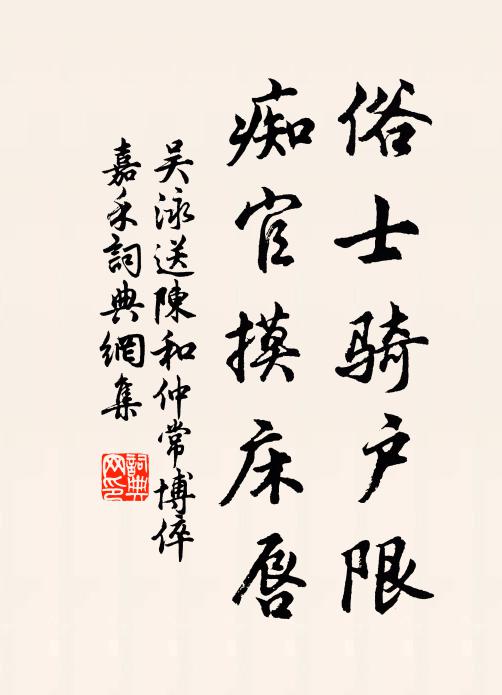 俗士骑户限
痴官摸床唇
吴泳送陳和仲常博倅
嘉禾詞典網集
詞典网印